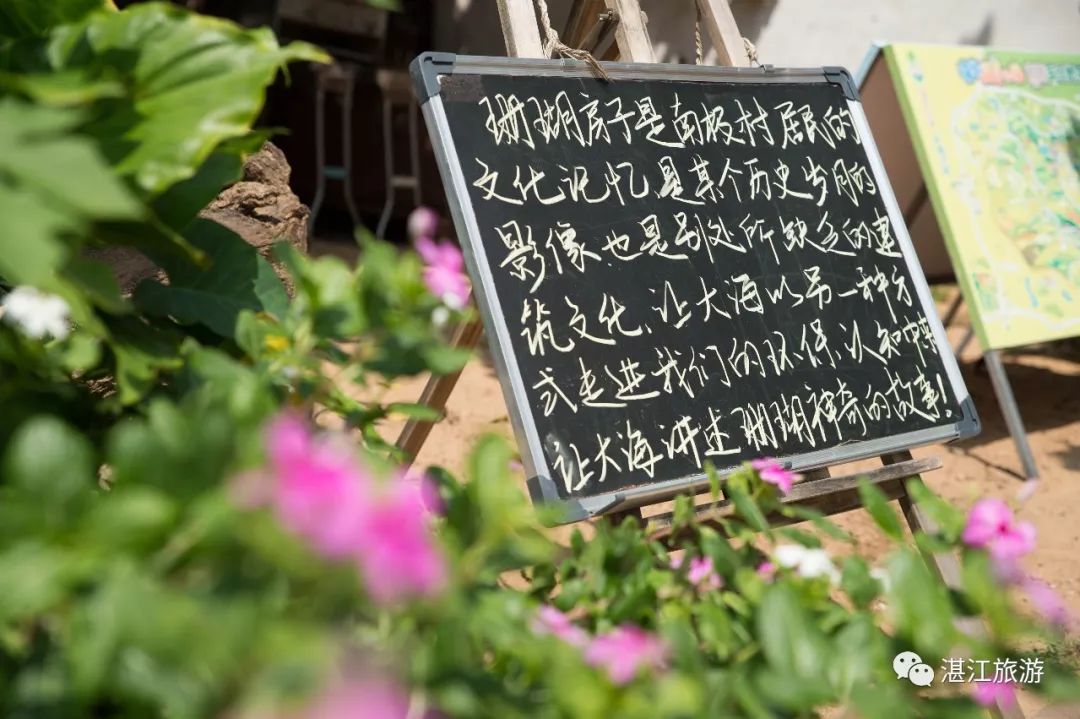 珊瑚房子是南极村居民的
文化记忆是某个历史岁月的
影像、也是别处所缺乏的建
筑文化、让大海以另一种方
式走进我们的环保、认知中
让大海讲述珊瑚神奇的故事!
湛江旅游